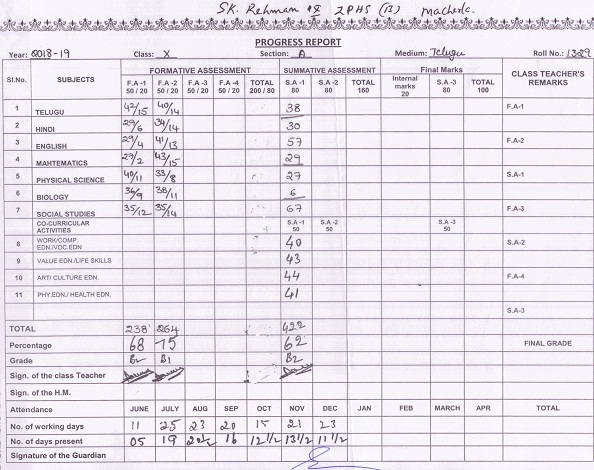 SK. Rehman X ZPHS (B) Macherla.
PROGRESS REPORT
Year: 2018-19 Class: X Section: A Medium: Telugu Roll No.: 1329
Sl.No. SUBJECTS FORMATIVE ASSESSMENT SUMMATIVE ASSESSMENT Final Marks CLASS TEACHER'S REMARKS
F.A -1 50 / 20 F.A -2 50 / 20 F.A -3 50 / 20 F.A -4 50 / 20 TOTAL 200 / 80 S.A -1 80 S.A -2 80 TOTAL 160 Internal marks 20 S.A -3 80 TOTAL 100
1 TELUGU 42/15 40/14 38 F.A-1
2 HINDI 29/6 34/14 30
3 ENGLISH 29/4 41/13 57 F.A-2
4 MAHTEMATICS 29/2 43/15 29
5 PHYSICAL SCIENCE 40/11 33/8 27 S.A-1
6 BIOLOGY 36/9 38/11 6
7 SOCIAL STUDIES 35/12 35/14 67 F.A-3
CO-CURRICULAR ACTIVITIES S.A -1 50 S.A -2 50 S.A -3 50
8 WORK/COMP. EDN./VOC.EDN 40 S.A-2
9 VALUE EDN./LIFE SKILLS 43
10 ART/ CULTURE EDN. 44 F.A-4
11 PHY.EDN./ HEALTH EDN. 41
S.A-3
TOTAL 238 264 422
Percentage 68 75 62 FINAL GRADE
Grade B2 B1 B2
Sign. of the class Teacher
Sign. of the H.M.
Attendance JUNE JULY AUG SEP OCT NOV DEC JAN FEB MARCH APR TOTAL
No. of working days 11 25 23 20 15 21 23
No. of days present 05 19 16 12 1/2 13 1/2 11 1/2
Signature of the Guardian